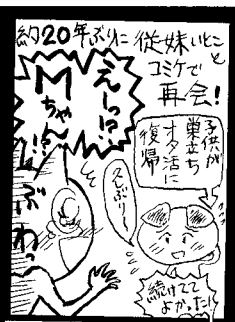 約20年ぶりに従妹いとこと
コミケで
再会!
えーっ!?
Mちゃん!?
ぶわっ
子供が
巣立ち
オタ活に
復帰
久しぶりー!
続けてて
よかった!